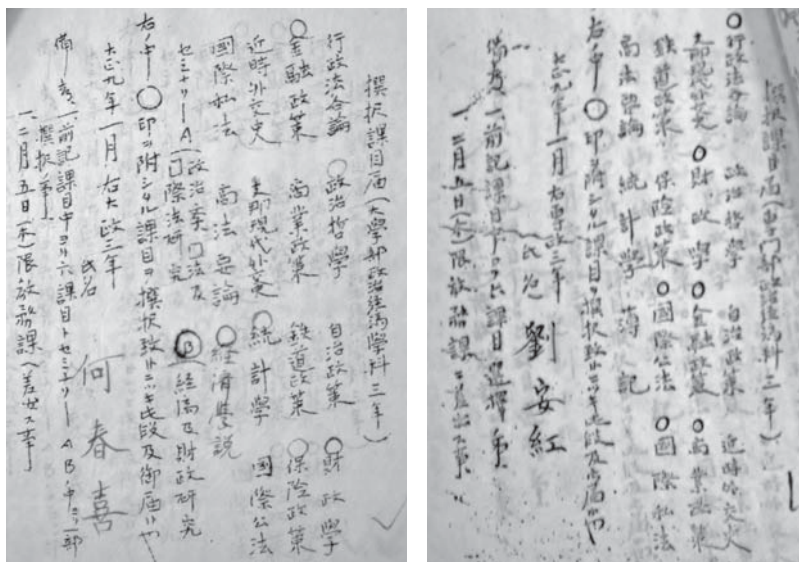 撰択課目届(大学部政治経済学科三年)
行政法各論 ○政治哲學 自治政策 ○財政學
○金融政策 商業政策 鉄道政策 ○保険政策
近時外交史 支那現代外交史 ○統計學 國際公法
國際私法 商法要論 ○経済學説
セミナリーA(政治 國法及國際法研究 Ⓑ経済及財政研究
右ノ中○印ヲ附シタル課目ヲ撰択致 段及御届
大正九年一月 右大政三年
氏名 何春喜
備考 一、前記課目中ヨリ六課目トセミナリーAB中ヨリ一部
撰択ノ事
一、二月五日(木)限教務課ヘ差出ス事
撰択課目届(専門部政治経済科三年)
○行政法各論 政治哲學 自治政策 近時外交史
○財政學 ○金融政策 ○商業政策
鉄道政策 保険政策 ○國際公法 ○國際私法
商法要論 統計學 簿記
右ノ中○印ヲ附シタル課目ヲ撰択致 段及御届
大正九年一月 右専政三年
氏名 劉安紅
備考 一、前記課目中ヨリ六課目選擇ノ事
一、二月五日(木)限教務課ヘ差出ス事